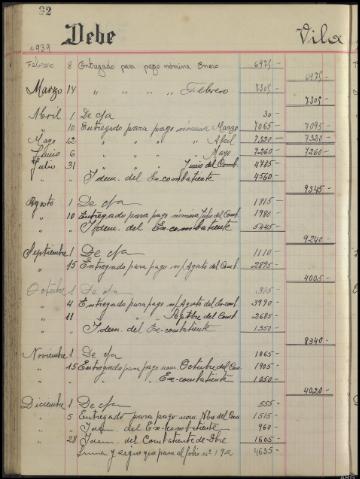 22
Debe Vila
1939
Febrero 8 Entregado para pago nómina Enero 6975-
6975-
Marzo 14 " " " " Febrero 7305-
7305-
Abril 1 De c/a 30-
" 10 Entregado para pago nómina Marzo 7065- 7095-
Mayo 12 " " " " Abril 7320- 7320-
Junio 6 " " " " Mayo 7260- 7260-
Julio 31 " " " Junio del Comb.
Idem. del Ex-combatiente 4560-
9345-
Agosto 1 De c/a 1815-
" 10 Entregado para pago nómina Julio del Comb. 1980-
" Idem. del Ex-combatiente 5445-
9240-
Septiembre 1 De c/a 1110-
" 15 Entregado para pago n/ Agosto del Comb. 2895-
4005-
Octubre 1 De c/a
" 4 Entregado para pago n/ Agosto del Ex-comb. 3990-
" 11 " " " Septbre del Comb. 2685-
" Idem. del Ex-combatiente
8340-
Noviembre 1 De c/a 1065-
" 15 Entregado para pago nom. Octubre del Com. 1905-
" " " " Ex-combatiente 1050-
4020-
Diciembre 1 De c/a 555-
" 5 Entregado para pago nom. Nbre del Com. 1515-
" Idem. del Ex-combatiente 960-
" 28 Idem. del Combatiente de Dbre 1605-
Suma y sigue que pasa al folio nº 4635-